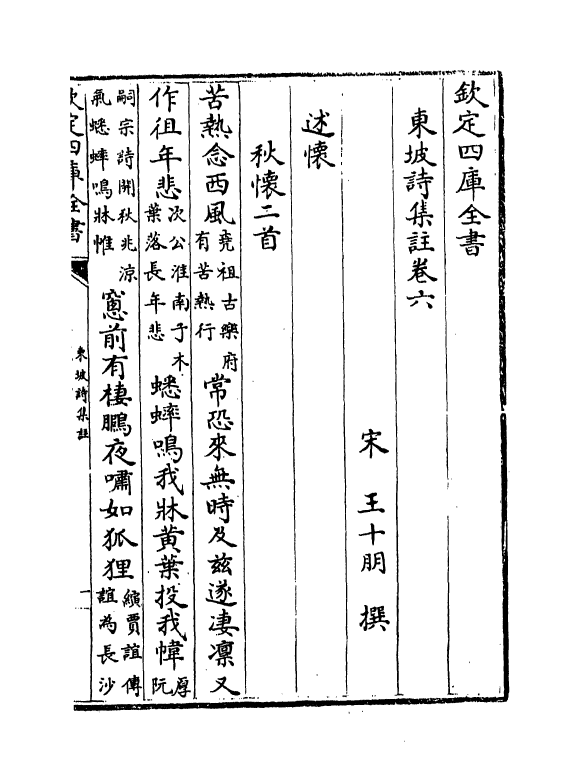 欽定四庫全書
東坡詩集註卷六
宋 王十朋 撰
述懷
秋懷二首
苦熱念西風堯祖古樂府有苦熱行常恐來無時及兹遂淒凜又
作徂年悲次公淮南子木葉落長年悲蟋蟀鳴我牀黄葉投我幃厚阮
嗣宗詩開秋兆涼氣蟋蟀鳴牀惟窻前有棲鵩夜嘯如狐狸縯賈誼傳誼為長沙
欽定四庫全書
東坡詩集註
一